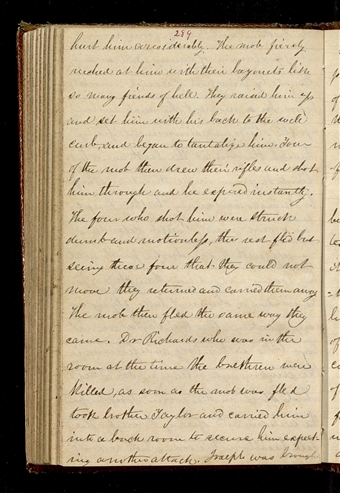 284
hurt him considerably. The mob fiercely
rushed at him with their bayonets like
so many fiends of hell. They raised him up
and set him with his back to the well
curb, and began to tantalize him. Four
of the mob then drew their rifles and shot
him through and he expired instantly.
The four who shot him were struck
dumb and motionless, the rest fled but
seeing these four that they could not
move they returned and carried them away
The mob then fled the same way they
came. Dr Richards who was in the
room at the time the brethren were
killed, as soon as the mob was fled
took brother Taylor and carried him
into a back room to secure him expect-
ing another attack. Joseph was brough